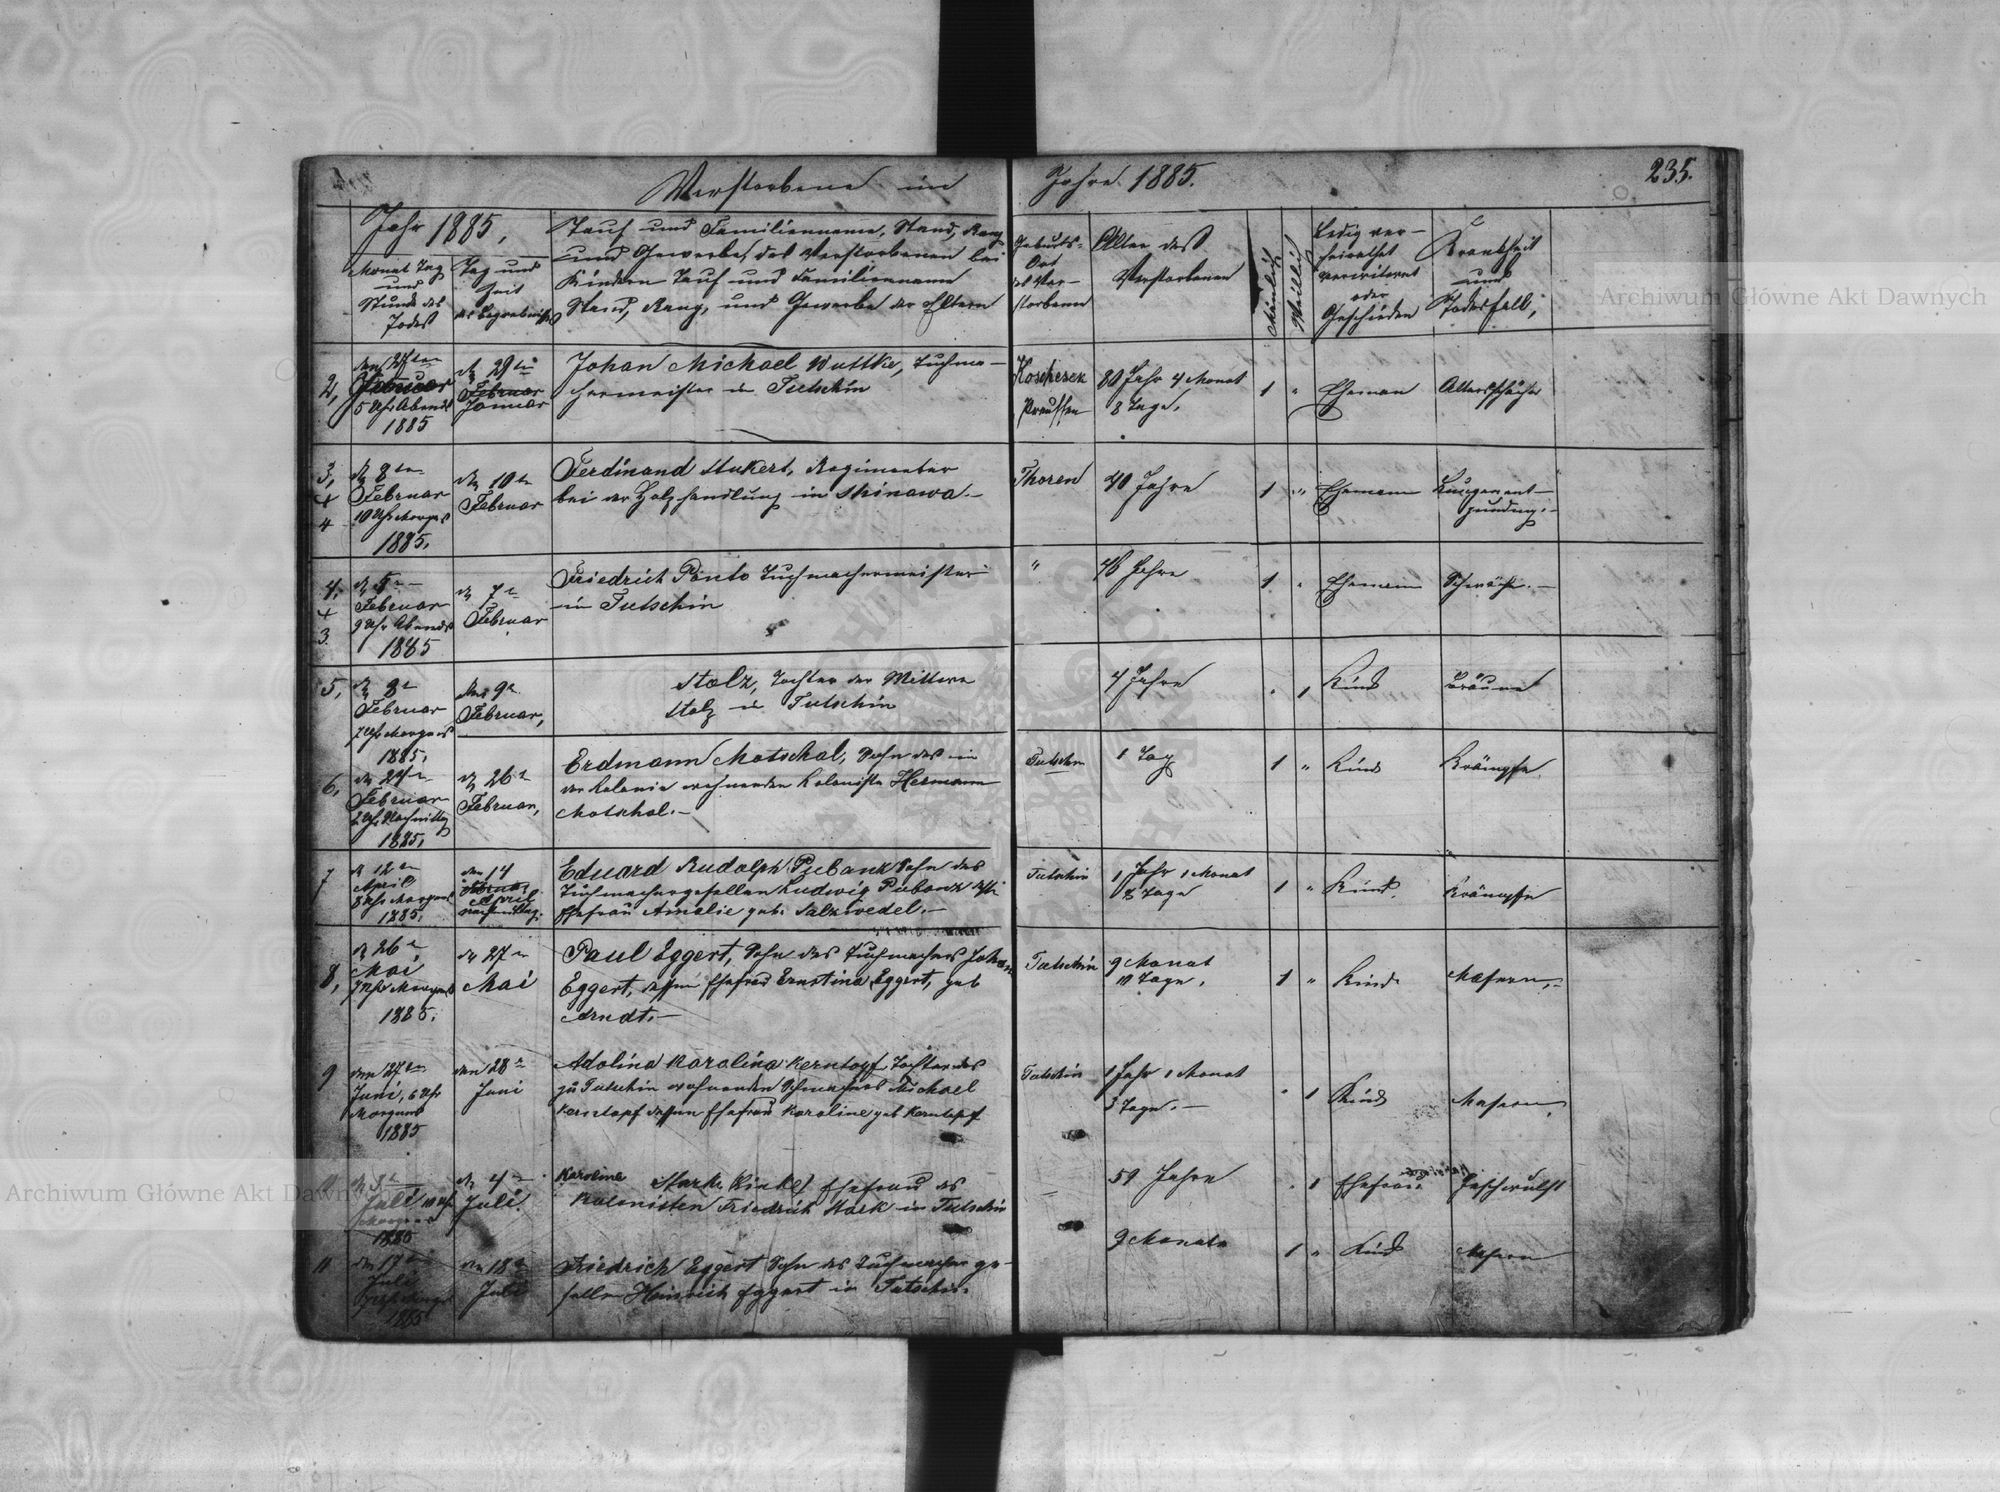 Verstorbene im Jahre 1885.
235.
Jahr 1885,
Monat Tag
und
Stunde des
Todes
Tag und
Zeit
des Begräbnisses
Tauf und Familienname, Stand, Rang
und Gewerbe des Verstorbenen bei
Kindern Tauf und Familienname
Stand, Rang, und Gewerbe der Eltern
Geburts-
Ort
des Ver-
storbenen
Alter des
Verstorbenen
Männlich
Weiblich
Ledig ver-
heirathet
verwitwet
oder
Geschieden
Krankheit
und
Todesfall,
2,
den 27ten
Februar
5 Uhr Abends
1885
d 29ten
Februar
Januar
Johan Michael Wuttke, Tuchma-
chermeister in Tutschin
Preussen
80 Jahr 4 Monat
8 Tage,
1
"
Eheman
Altersschwäche
3,
+
4
d 8ten
Februar
10 Uhr Morgens
1885,
d 10ten
Februar
Ferdinand Stukert,
bei der Holzhandlung in Skinawa.-
Thoren
40 Jahre
1
"
Ehemann
Lungenent-
zündung.-
4,
+
3
d 5ten
Februar
9 Uhr Abends
1885
d 7ten
Februar
Friedrich Ponto Tuchmachermeister
in Tutschin
"
48 Jahre
1
"
Ehemann
Schwäche.-
5,
d 8ten
Februar
7 Uhr Morgens
1885,
den 9ten
Februar,
Stolz, Tochter der Wittwe
Stolz in Tutschin
4 Jahre
"
1
Kind
Bräune
6,
d 24ten
Februar
2 Uhr Nachmittag
1885,
d 26ten
Februar,
Erdmann Motschal, Sohn des in
der Kolonie wohnenden Kolonisten Hermann
Motschal.-
Tutschin
1 Tag
1
"
Kind
Krämpfe
7
d 12ten
April
8 Uhr Morgens
1885,
den 14
Februar
April
Eduard Rudolph Piebanz Sohn des
Tuchmachergesellen Ludwig Piebanz
Ehefrau Amalie geb. Salzwedel.-
Tutschin
1 Jahr 1 Monat
8 Tage
1
"
Kind.
Krämpfe
8,
d 26ten
Mai
7 Uhr Morgens
1885,
d 27ten
Mai
Paul Eggert, Sohn des Tuchmachers Johan
Eggert, dessen Ehefrau Ernstina Eggert, geb
Arndt.-
Tutschin
9 Monat
11 Tage,
1
"
Kind
Masern.-
9
den 27ten
Juni, 6 Uhr
Morgens
1885
den 28ten
Juni
Adolina Karolina Kerntopf Tochter des
zu Tutschin wohnenden Michael
Kerntopf dessen Ehefrau Karoline geb Kerntopf
Tutschin
1 Jahr 1 Monat
3 Tage.-
"
1
Kind
Masern,
d 3ten
Juli 10 Uhr
Morgens
1885
d 4ten
Juli
Karoline Stark Ehefrau des
Kolonisten Friedrich Stark in Tutschin
59 Jahre
"
1
Ehefrau
Geschwulst
11
den 17ten
Juli
1885
den 18ten
Juli
Friedrich Eggert Sohn des Tuchmacherge-
sellen Heinrich Eggert in Tutschin.
9 Monate
1
"
Kind
Masern
Archiwum Główne Akt Dawnych
Archiwum Główne Akt Dawnych